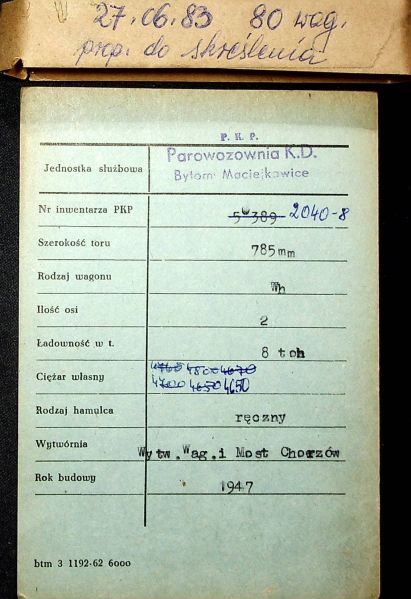 27.06.83 80 wag.
prop. do skreślenia
P. K. P.
Jednostka służbowa Parowozownia K.D.
Bytom Maciejkowice
Nr inwentarza PKP 5 389 2040-8
Szerokość toru 785mm
Rodzaj wagonu Wh
Ilość osi 2
Ładowność w t. 8 ton
Ciężar własny 4760 4800 4670
4700 4650 4650
Rodzaj hamulca ręczny
Wytwórnia Wytw.Wag.i Most Chorzów
Rok budowy 1947
btm 3 1192-62 6000